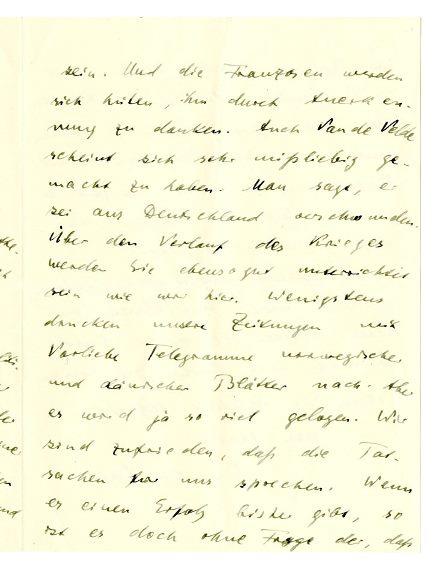 sein. Und die Franzosen werden
sich hüten, ihn durch Anerken-
nung zu danken. Auch Van de Velde
scheint sich sehr mißliebig ge-
macht zu haben. Man sagt, er
sei aus Deutschland verschwunden.
Über den Verlauf des Krieges
werden Sie ebensogut unterrichtet
sein wie wir hier. Wenigstens
drucken unsere Zeitungen mit
Vorliebe Telegramme norwegischer
und dänischer Blätter nach. Aber
es wird ja so viel gelogen. Wir
sind zufrieden, daß die Tat-
sachen für uns sprechen. Wenn
es einen Erfolg bisher gibt, so
ist es doch ohne Frage der, daß